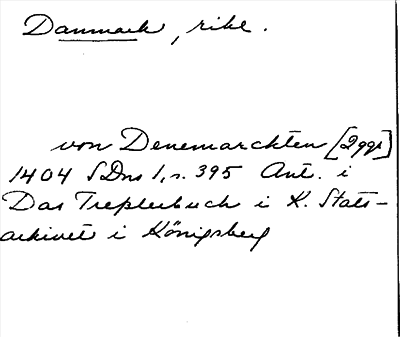 Danmark, rike.
von Denemarckten [2 ggr]
1404 SDns 1, s. 395 Ant. i
Das Treßlerbuch i K. Stats-
arkivet i Königsberg